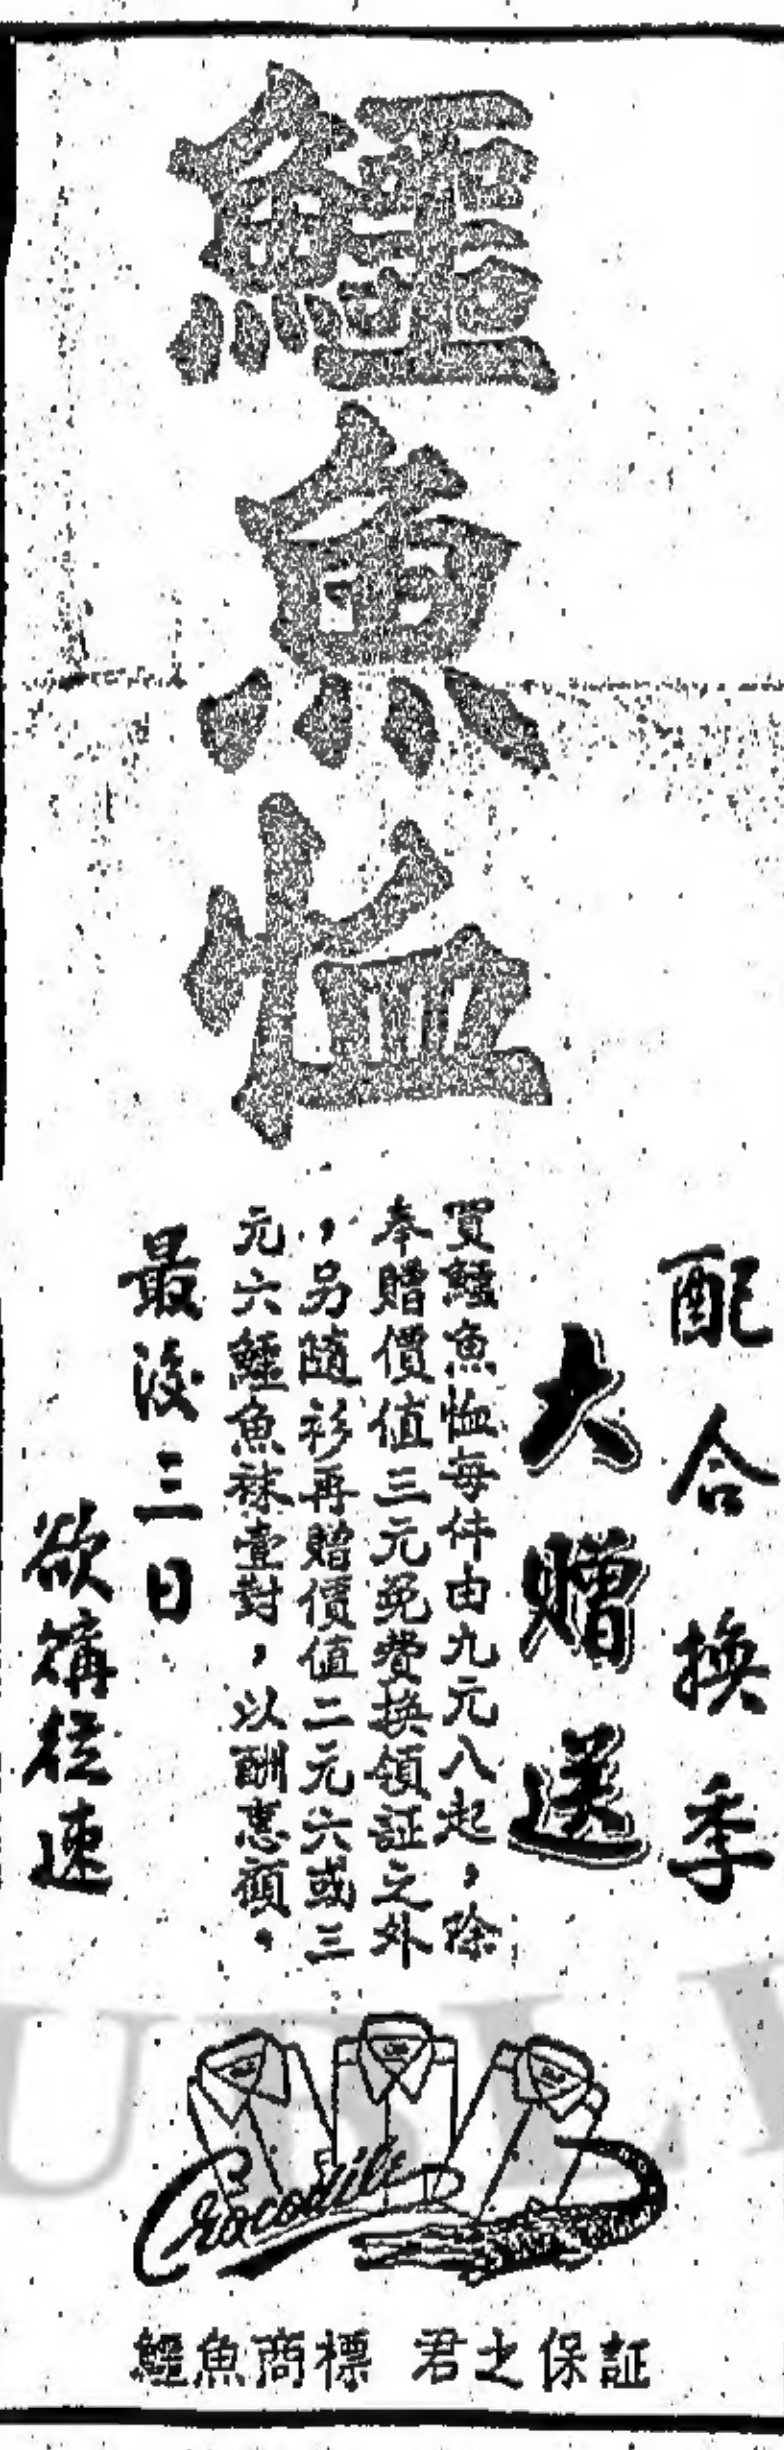 鱷魚恤
配合換季
大贈送
買鱷魚恤每件由九元八起，除
奉贈價值三元免費換領証之外
，另隨衫再贈價值二元六或三
元六鱷魚襪壹對，以酬惠顧。
最後三日
欲購從速
Crocodile
鱷魚商標 君之保証